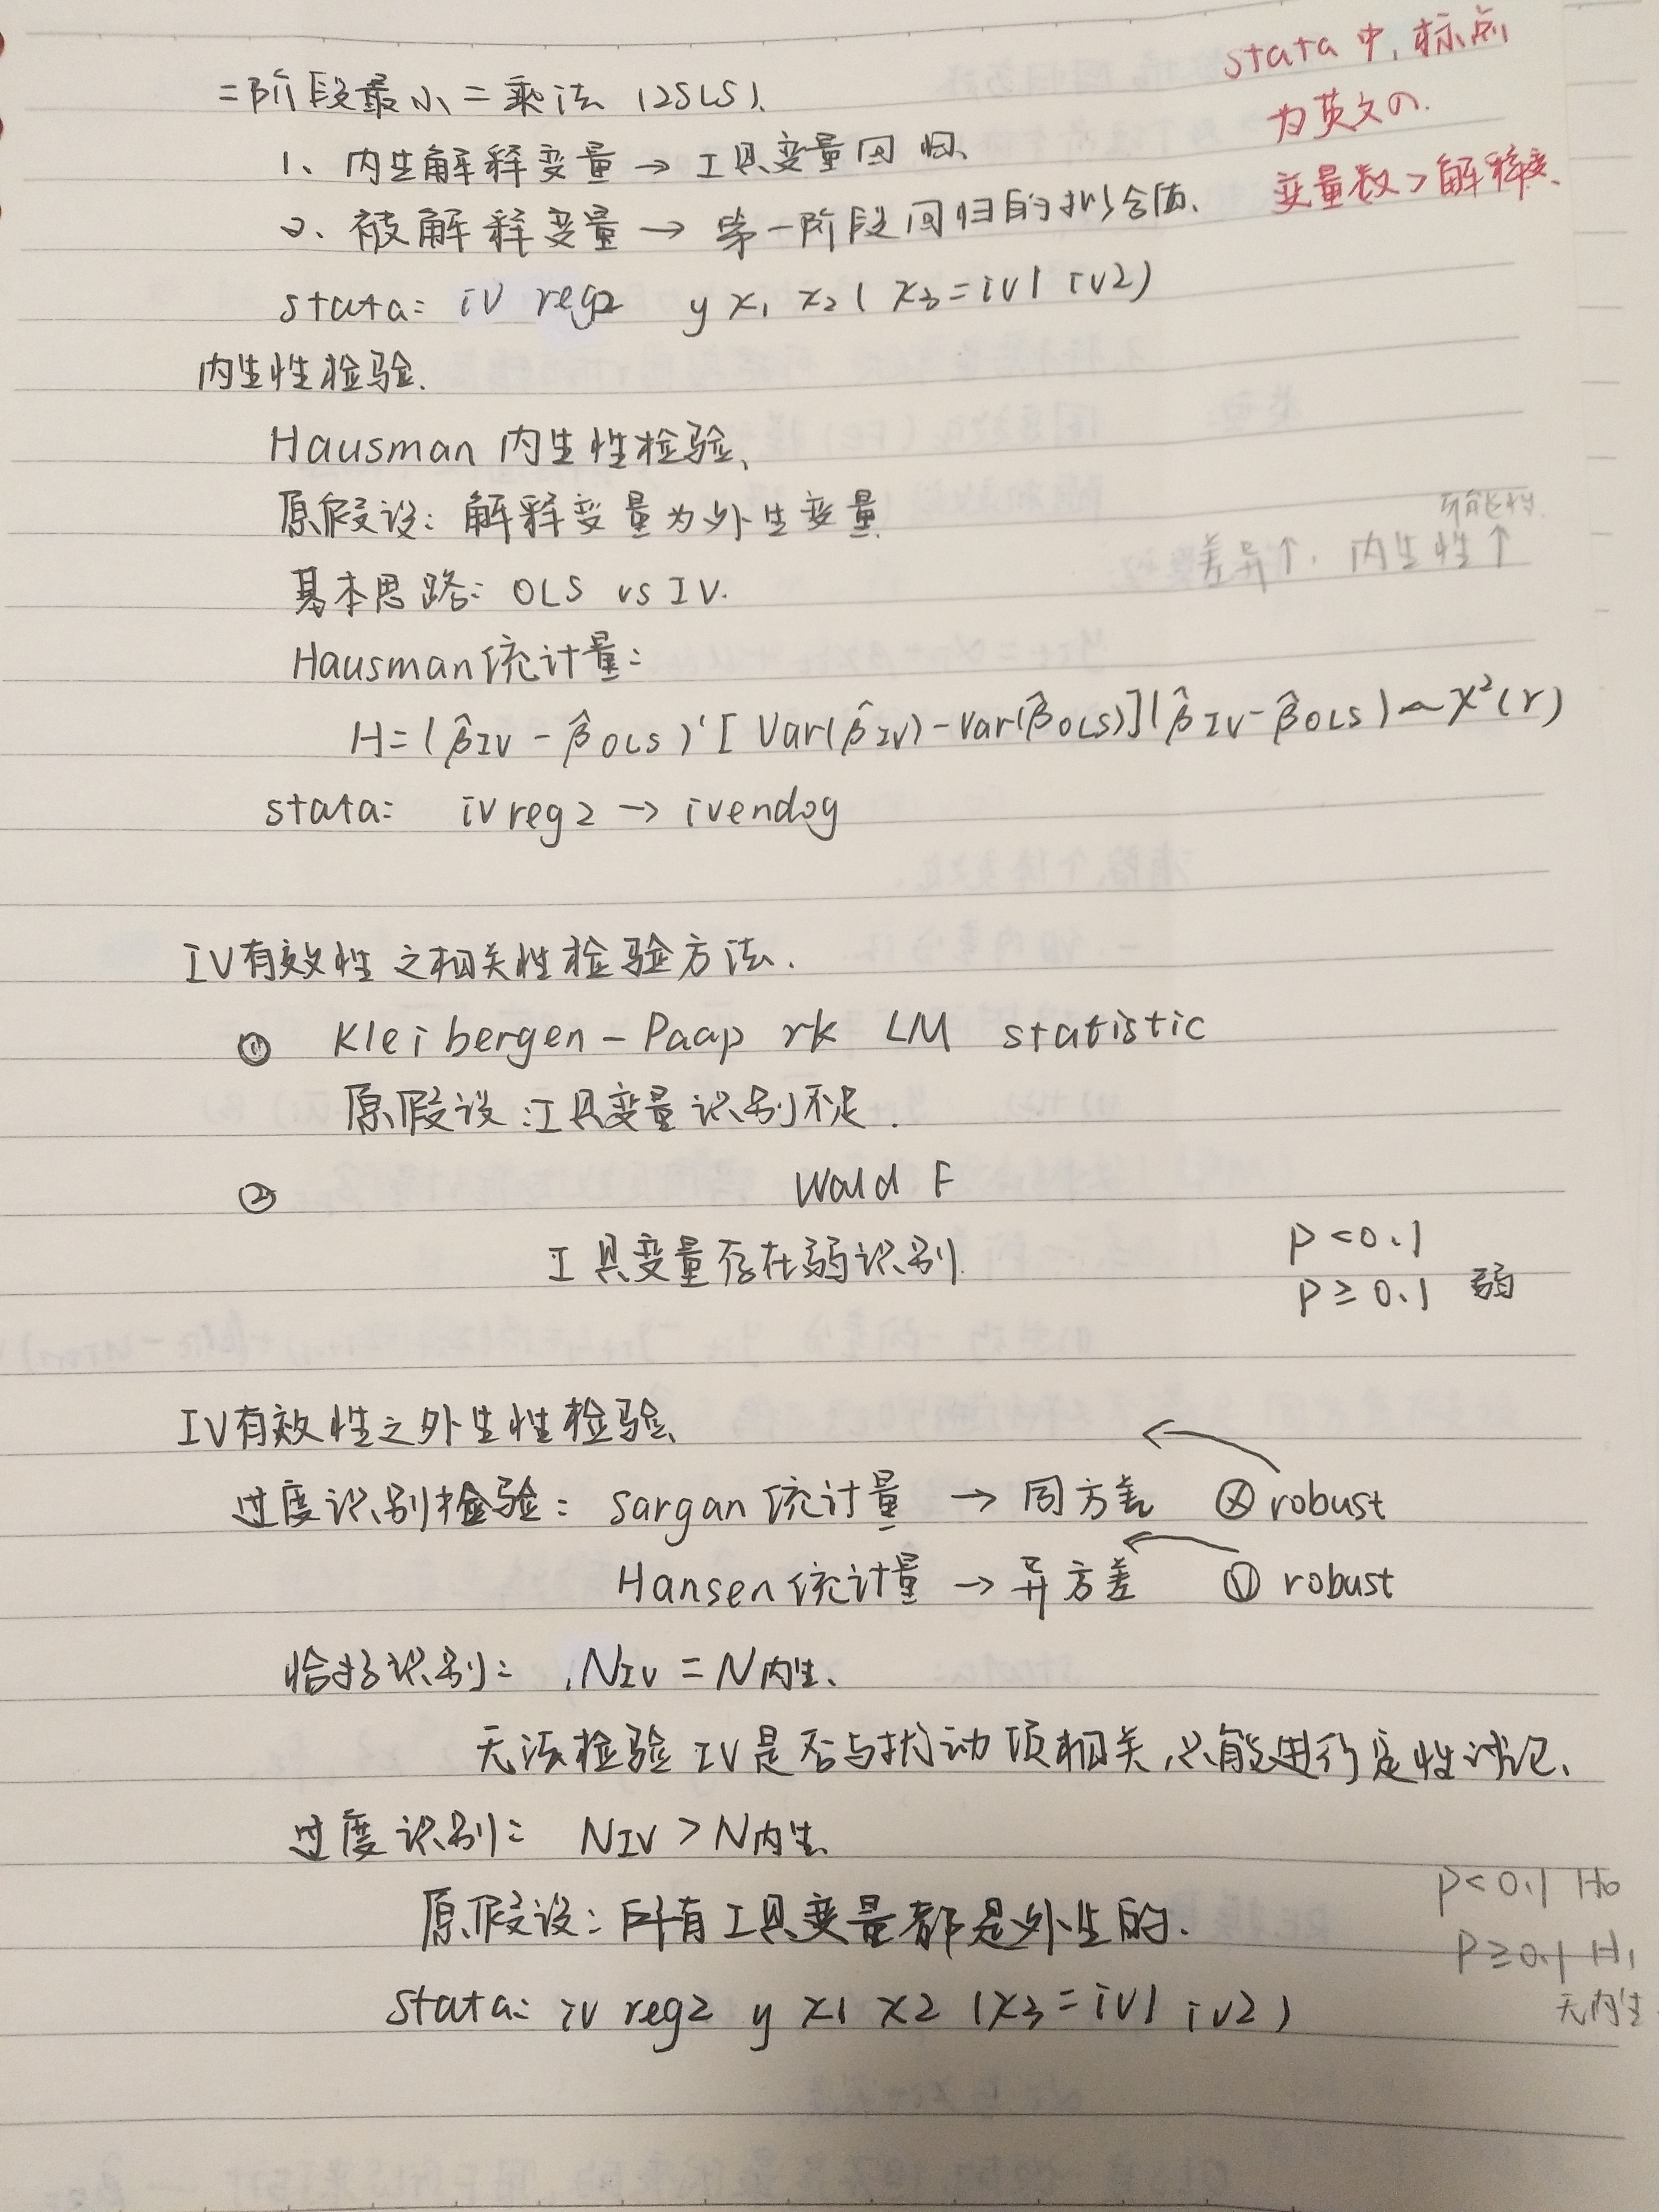 二阶段最小二乘法（2SLS）.
1、内生解释变量 → 工具变量回归、
2、被解释变量 → 第一阶段回归的拟合值、
stata: iv reg2 y x₁ x₂ ( x₃ = iv1 iv2 )
stata 中, 标点
为英文の.
变量数 > 解释变、
内生性检验.
Hausman 内生性检验、
原假设: 解释变量为外生变量.
可能性
差异↑. 内生性↑
基本思路: OLS vs IV.
Hausman 统计量:
H = ( β̂IV - β̂OLS )' [ Var(β̂IV) - Var(β̂OLS) ] ( β̂IV - β̂OLS ) ~ χ²(r)
stata: ivreg2 → ivendog
IV有效性之相关性检验方法.
① Kleibergen - Paap rk LM statistic
原假设: 工具变量识别不足.
② Wald F
工具变量存在弱识别.
P < 0.1
P ≥ 0.1 弱
IV有效性之外生性检验、
过度识别检验: Sargan 统计量 → 同方差 ⓧ robust
Hansen 统计量 → 异方差 ✓ robust
恰好识别: NIV = N内生、
无法检验 IV是否与扰动项相关, 只能进行定性讨论、
过度识别: NIV > N内生、
原假设: 所有工具变量都是外生的.
P < 0.1 H₀
P ≥ 0.1 H₁
无内生
stata: iv reg2 y x1 x2 ( x3 = iv1 iv2 )